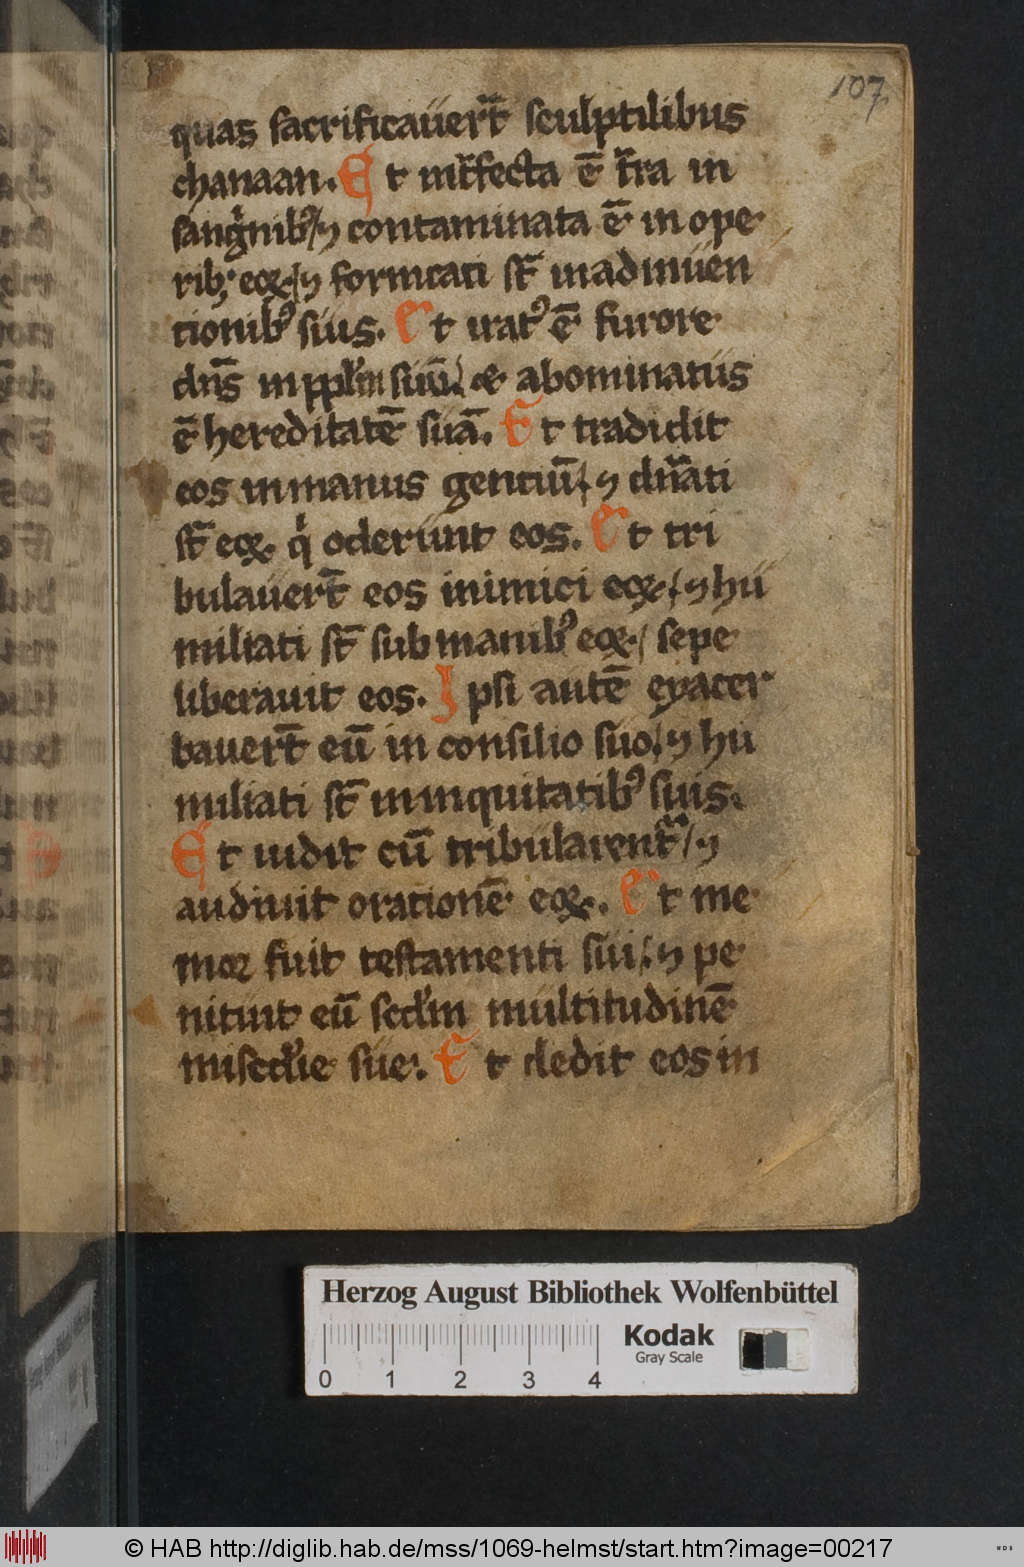 107
quas sacrificauer̄t sculptilibus
chanaan. Et int̄fecta ē t̄ra in
sangͥnibꝰ/ ⁊ contaminata ē in ope
ribꝫ eoꝝ/ ⁊ fornicati st̄ in adinuen
tionibꝰ suis. Et iratꝰ ē furore
dn̄s in pplm̄ suū/ & abominatus
ē hereditatē suā. Et tradidit
eos in manus gentiū/ ⁊ dn̄ati
st̄ eoꝝ qͥ oderunt eos. Et tri
bulauer̄t eos inimici eoꝝ/ ⁊ hu
miliati st̄ sub manibꝰ eoꝝ/ sepe
liberauit eos. Ipsi autē exacer
bauer̄t eū in consilio suo/ ⁊ hu
miliati st̄ in iniquitatibꝰ suis.
Et uidit cū tribularent᷑/ ⁊
audiuit orationē eoꝝ. Et me
moꝛ fuit testamenti sui/ ⁊ pe
nituit eū scd̄m multitudinē
misc̄die sue. Et dedit eos in
Herzog August Bibliothek Wolfenbüttel
Kodak
Gray Scale
0 1 2 3 4
© HAB http://diglib.hab.de/mss/1069-helmst/start.htm?image=00217